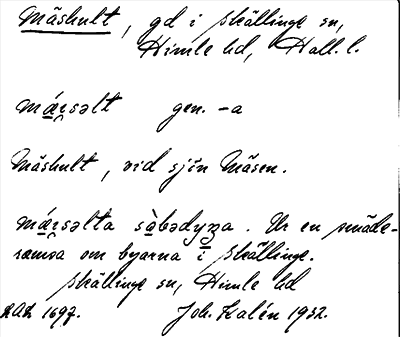 Mäshult, gd i Skällinge sn,
Himle hd, Hall. l.
mǽrsəlt gen. -a
Mäshult, vid sjön Mäsen.
mǽrsəlta sàbədyʒa. Ur en smäde-
ramsa om byarna i Skällinge.
Skällinge sn, Himle hd
1697. Joh. Kalén 1932.